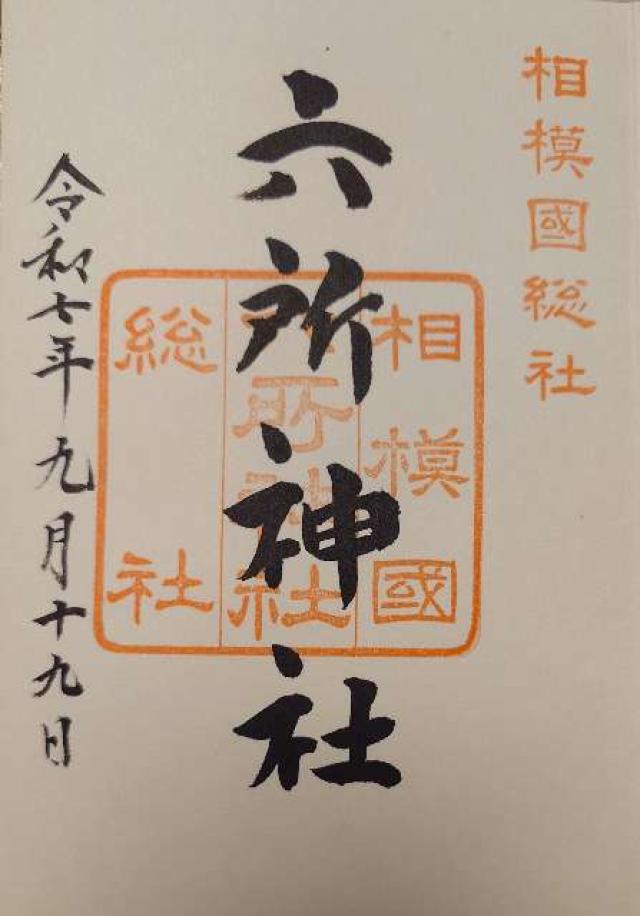 相模國総社
六所神社
相模國
六所神社
総社
令和七年九月十九日